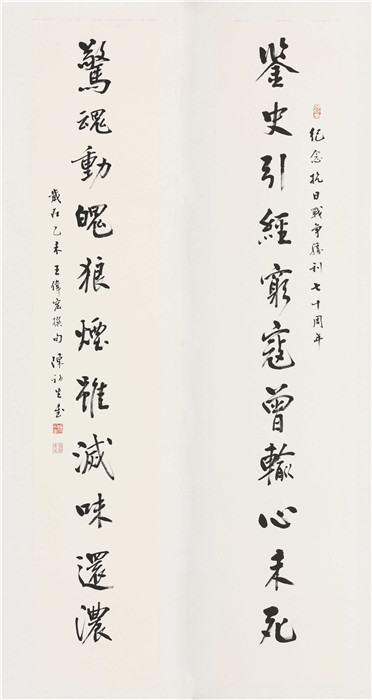 纪念抗日戰争勝利七十周年
鉴史引經窮寇曾輸心未死
驚魂動魄狼煙雖滅味還濃
歲在乙未王偉宏撰句陳初生書